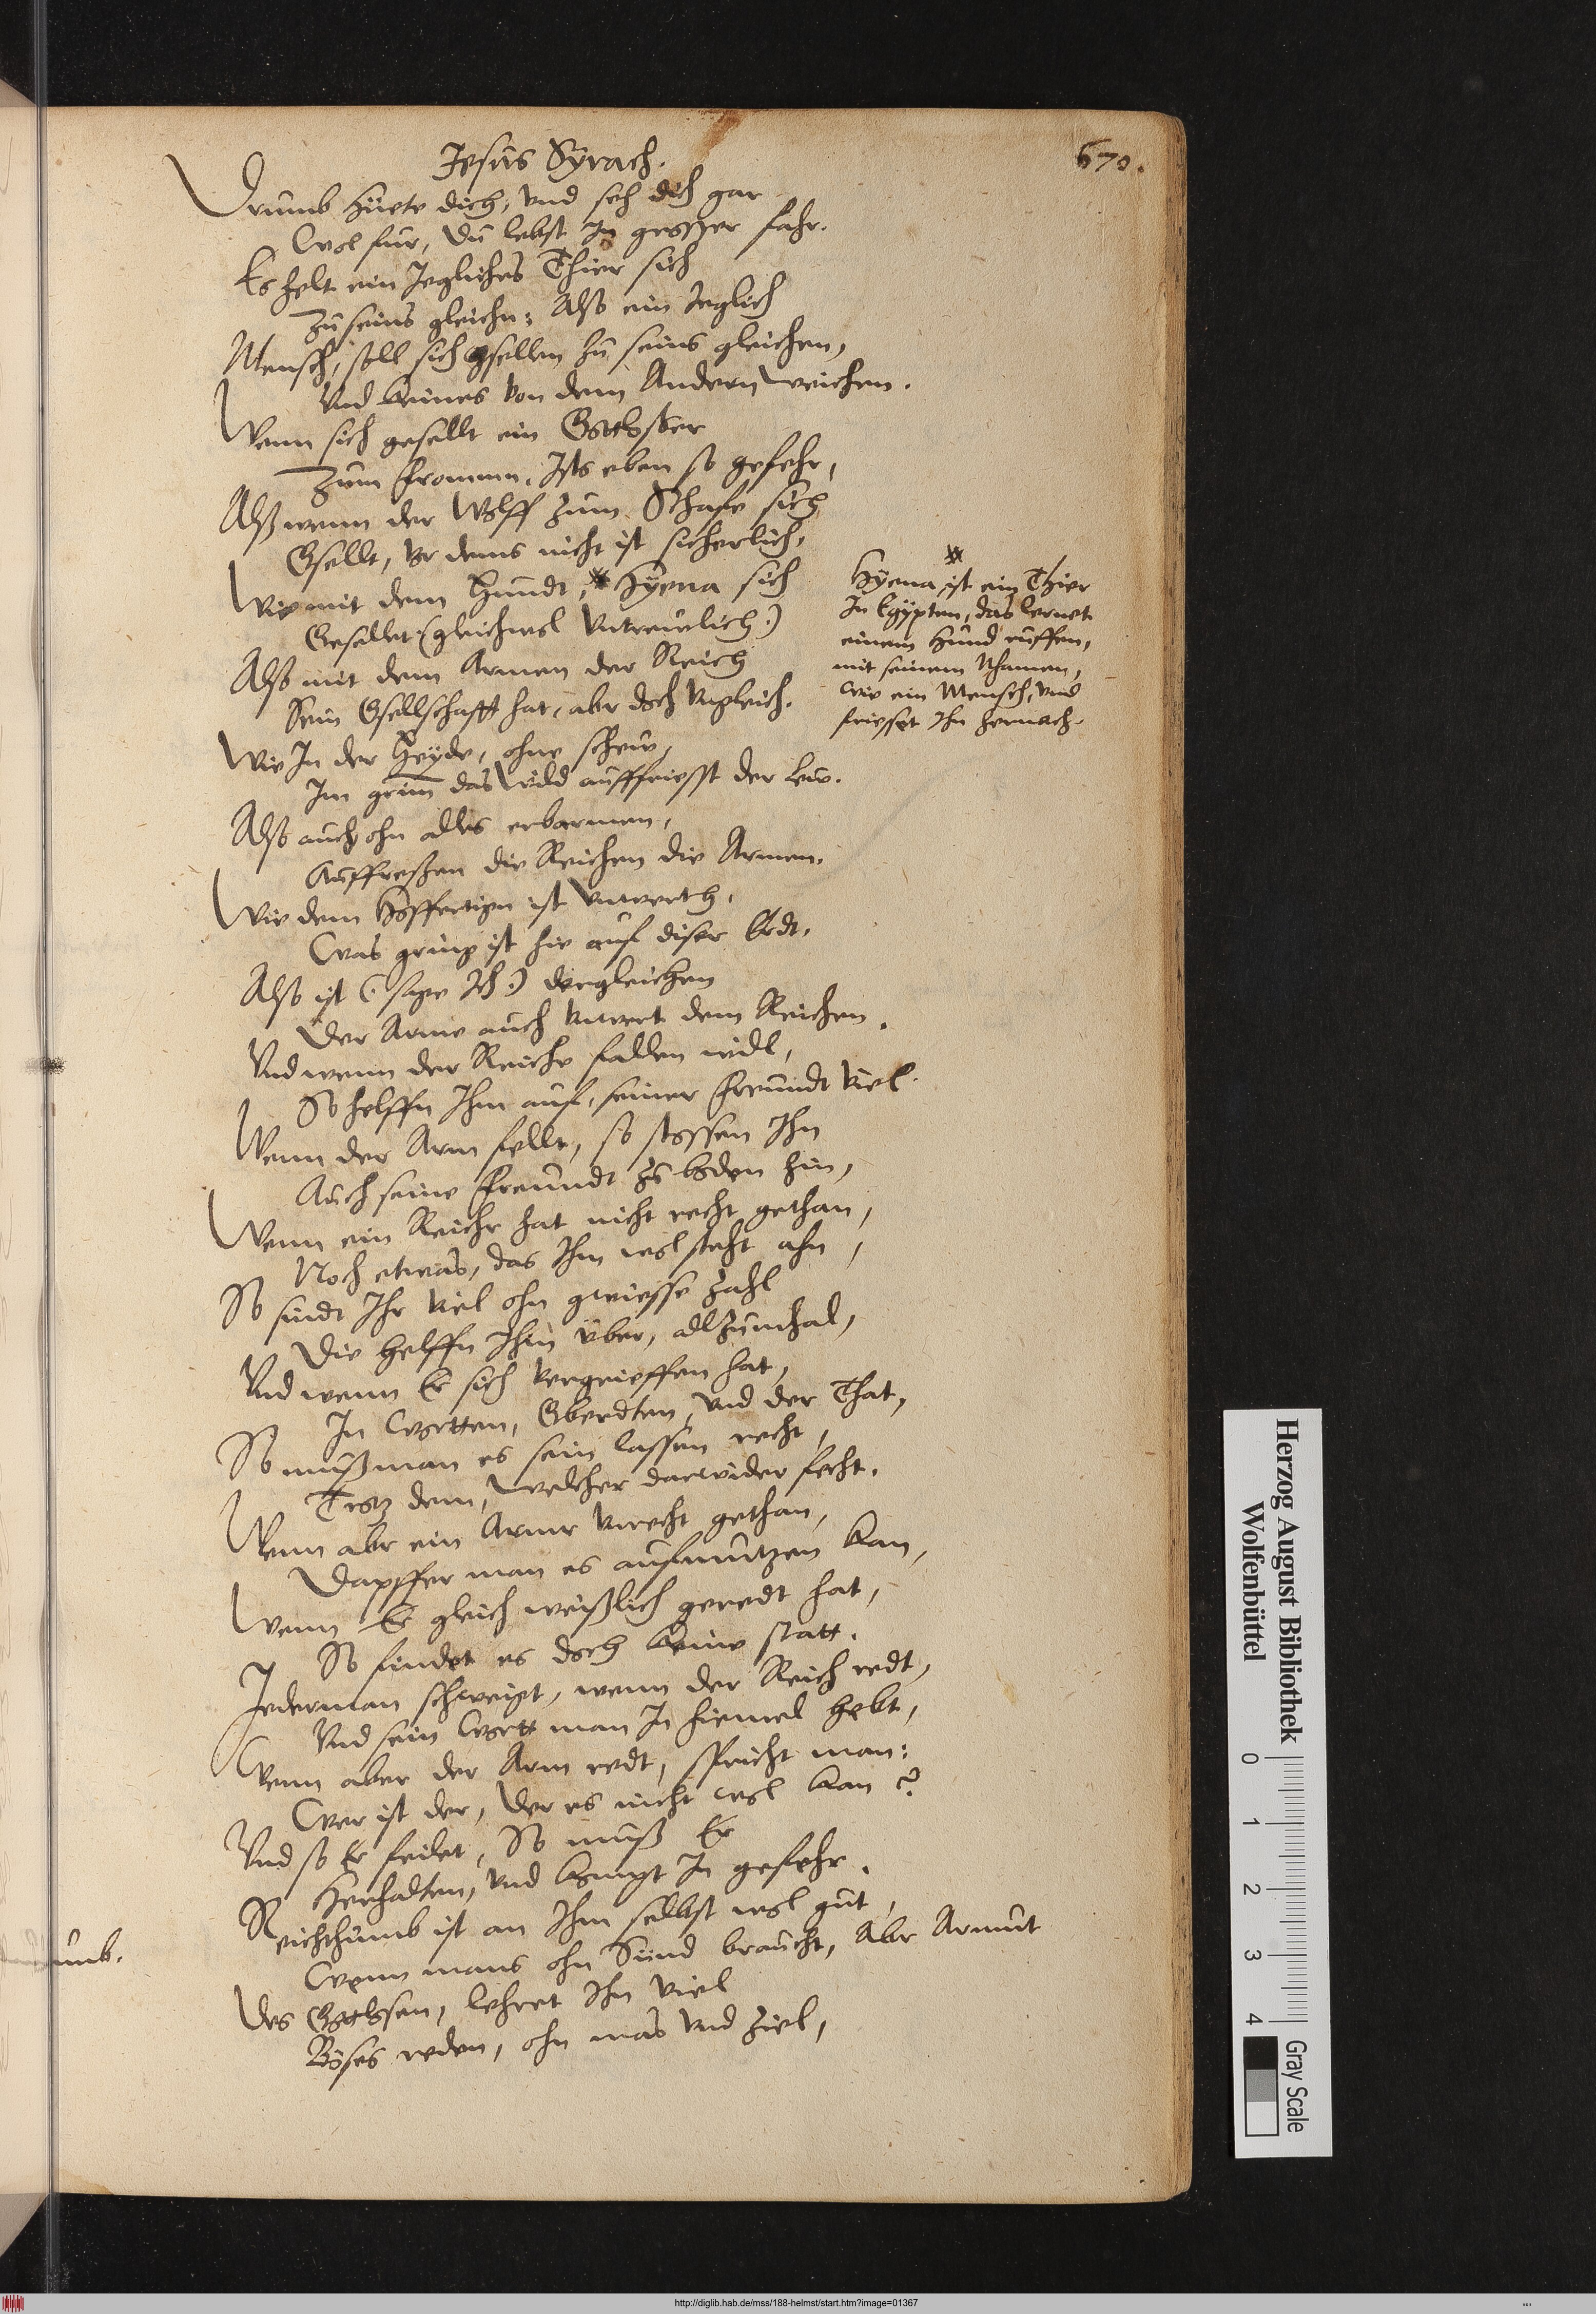 Jesus Syrach.
670.
Drumb hüete dich, vnd seh dich gar
Wol fur, du lebst In grosser fahr.
Es helt ein Jegliches Thier sich
Zu seins gleichn: Also ein Jeglich
Mensch, soll sich gsellen zu seins gleichen,
Vnd keines von dem Andern weichen.
Wenn sich gesellt ein Gottloser
Zum frommen, Ists eben so gefehr,
Alß wenn der Wolff zum Schafe sich
Gsellt, vor dems nicht ist sicherlich,
Wie mit dem Hundt, * Hyena sich
Gesellet (gleichwol vntreulich:)
Also mit dem Armen der Reich
Sein Gsellschafft hat, abr doch vngleich.
Wie In der Heyde, ohne schew,
Im grim̄ das Wild auffriesst der Lew.
Also auch ohn alles erbarmen,
Auffressen die Reichen die Armen.
Wie dem Hoffertign ist vnwerth,
Was gring ist hie auf diser Erdt,
Also ist (: sage Ich :) dergleichen
Der Arme auch vnwert dem Reichen.
Vnd wenn der Reiche fallen will,
So helffn Ihm auf, seiner freundt viel.
Wenn der Arm fellt, so stossen Ihn
Auch seine freundt zu boden hin,
Wenn ein Reichr hat nicht recht gethan,
Noch etwas, das Ihm wol steht ahn,
So sindt Ihr viel ohn gwiesse zahl
Die helffn Ihm vber, allzumhal,
Vnd wenn Er sich vergrieffen hat,
In Wortten, Gberdten, vnd der That,
So muß man es sein lassen recht,
Trotz dem, welcher darwider fecht.
Wenn abr ein Armr vnrecht gethan,
Dapffer man es aufmutzen kan,
Wenn Er gleich weißlich geredt hat,
So findet es doch keine statt.
Jederman schweigt, wenn der Reich redt,
Vnd sein Wortt man In hiemel hebt,
Wenn aber der Arm redt, spricht man:
Wer ist der, der es nicht wol kan?
Vnd so Er feilet, So muß Er
Herhalten, vnd kompt In gefehr.
Reichthumb ist an Ihm selbst wol gut,
Wenn mans ohn Sünd braucht, Abr Armut
Des Gottlosen, lehret Ihn viel
Böses reden, ohn mas vnd ziel,
*
Hyena, ist ein Thier
In Egypten, das lernet
einem Hund ruffen,
mit seinem Nhamen,
wie ein Mensch, vnd
friesset Ihn hernach.
umb.
Herzog August Bibliothek
Wolfenbüttel
0 1 2 3 4
Gray Scale
http://diglib.hab.de/mss/188-helmst/start.htm?image=01367